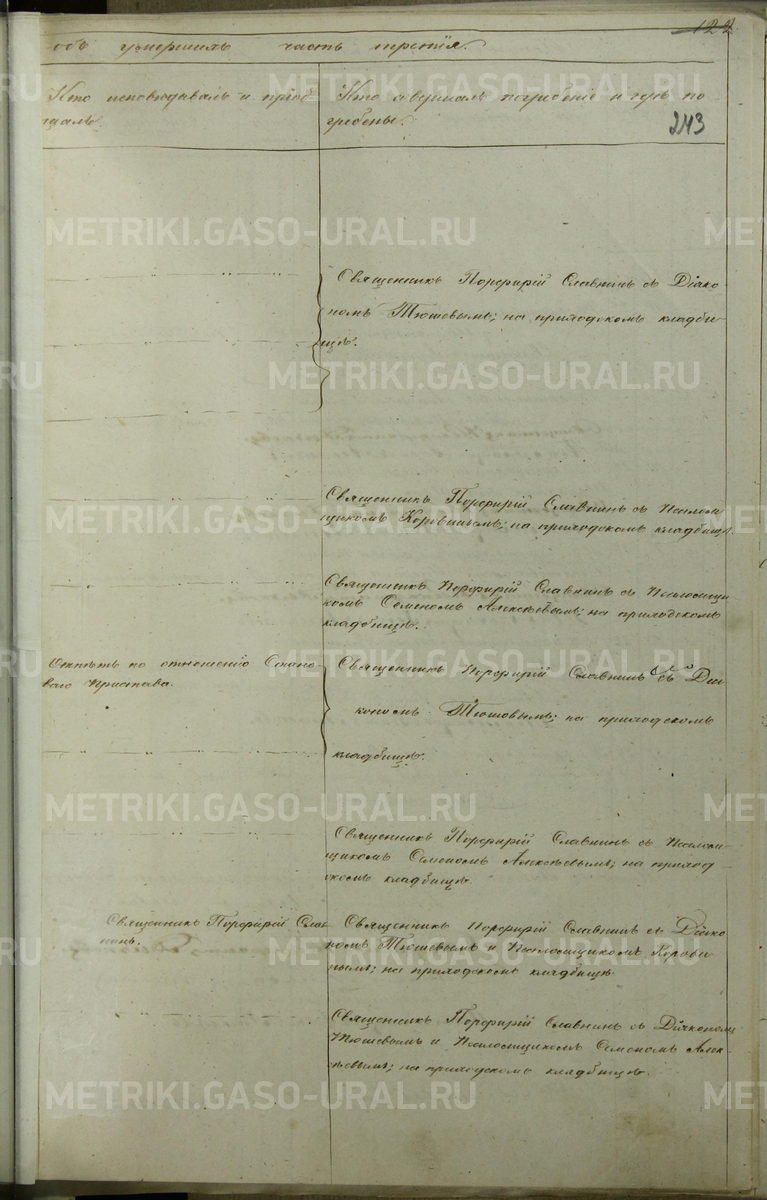 122
объ умершихъ часть третія.
Кто исповѣдывалъ и пріоб-
щалъ.
Кто совершалъ погребеніе и гдѣ по
гребены.
243
Священникъ Порфирій Славнинъ съ Діако-
номъ Тюшевымъ; на приходскомъ кладби-
щѣ.
Священникъ Порфирій Славнинъ съ Псаломщи
щикомъ Коровинымъ; на приходскомъ кладбищѣ.
Священникъ Порфирій Славнинъ съ Псаломщи
комъ Семеномъ Алексѣевымъ; на приходскомъ
кладбищѣ.
Отпѣтъ по отношенію Стано-
ваго Пристава.
Священникъ Порфирій Славнинъ съ Діа-
кономъ Тюшевымъ; на приходскомъ
кладбищѣ.
Священникъ Порфирій Славнинъ съ Псалом-
щикомъ Семеномъ Алексѣевымъ; на приход
скомъ кладбищѣ.
Священникъ Порфирій Слав-
нинъ.
Священникъ Порфирій Славнинъ съ Діако
номъ Тюшевымъ и Псаломщикомъ Корови
нымъ; на приходскомъ кладбищѣ.
Священникъ Порфирій Славнинъ съ Діакономъ
Тюшевымъ и Псаломщикомъ Семеномъ Алек-
сѣевымъ; на приходскомъ кладбищѣ.
METRIKI.GASO-URAL.RU